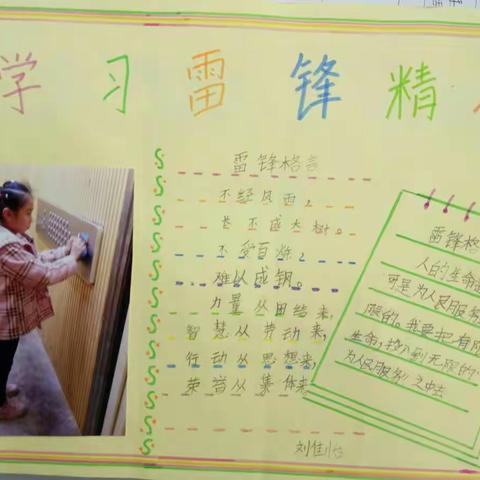 学习雷锋精
雷锋格言
不经风雨，
长不成大树。
不受百炼，
难以成钢。
力量从团结来，
智慧从劳动来，
行动从思想来，
荣誉从集体来
刘佳怡
雷锋格
人的生命
可是为人民服务
限的。我要把有限
生命，投入到无限的
为人民服务之中去